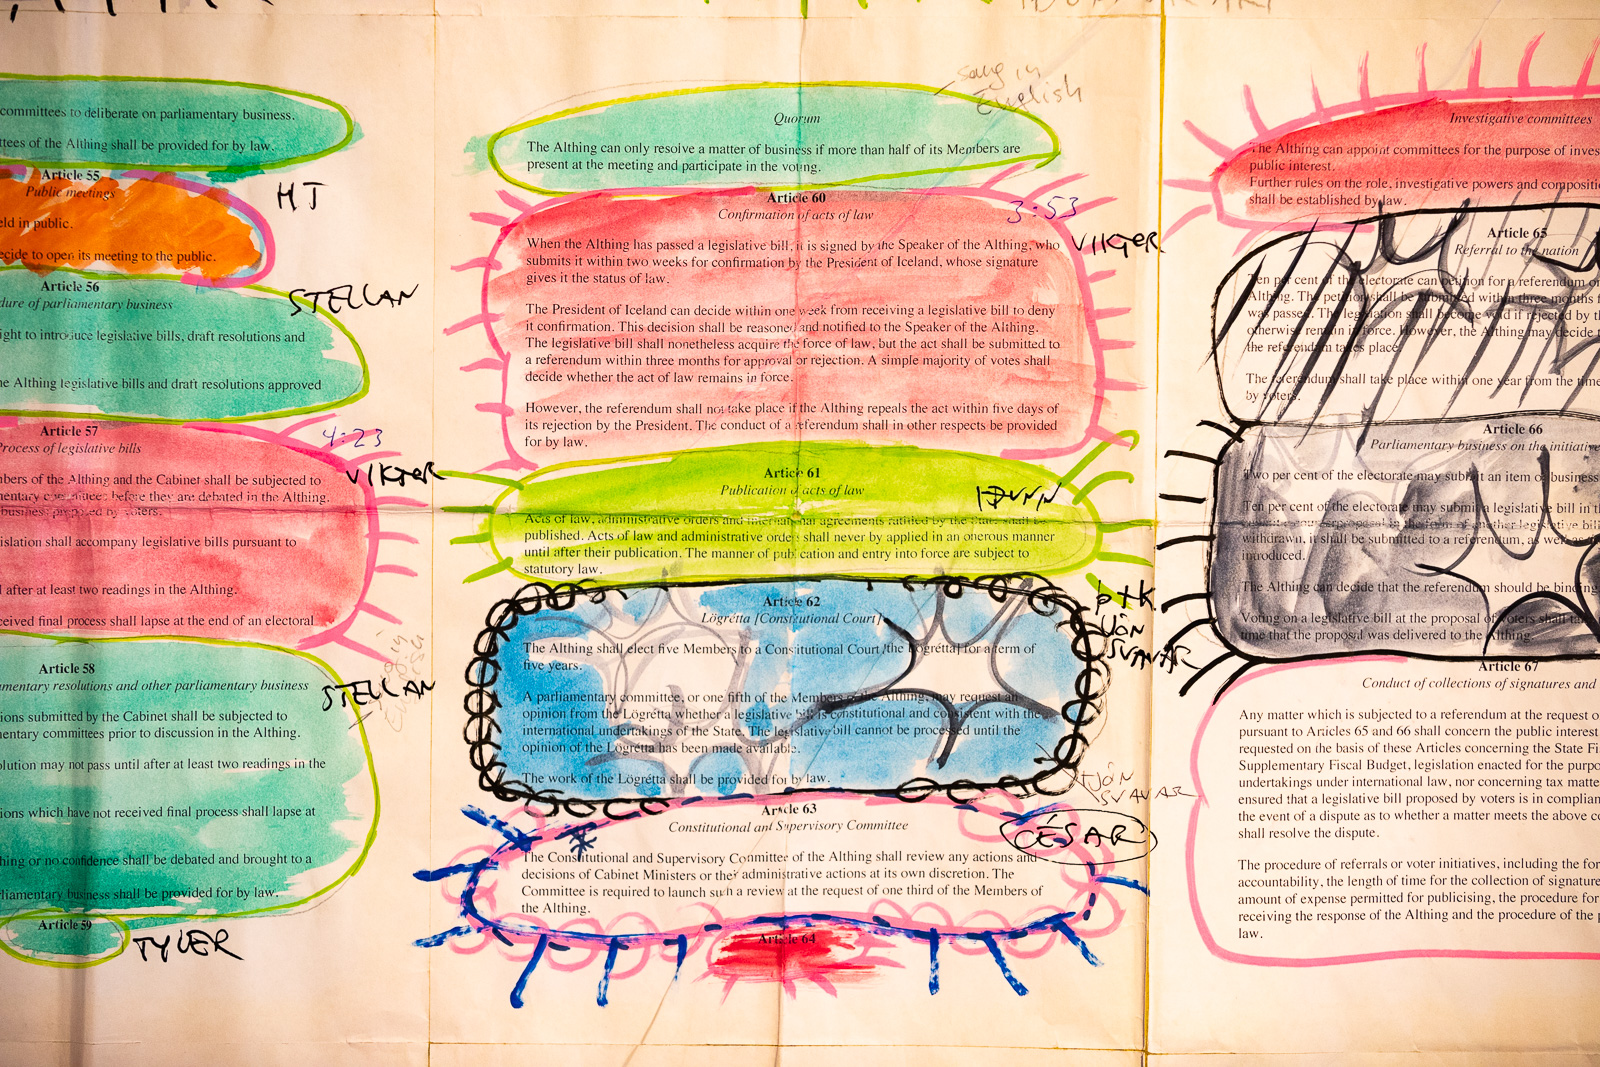 committees to deliberate on parliamentary business.
ttees of the Althing shall be provided for by law.
Article 55
Public meetings
eld in public.
ecide to open its meeting to the public.
HJ
Article 56
dure of parliamentary business
STELLAN
ight to introduce legislative bills, draft resolutions and
he Althing legislative bills and draft resolutions approved
Article 57
Process of legislative bills
4:23
VIKTER
mbers of the Althing and the Cabinet shall be subjected to
mentary committees before they are debated in the Althing.
business proposed by voters.
islation shall accompany legislative bills pursuant to
l after at least two readings in the Althing.
ceived final process shall lapse at the end of an electoral
Article 58
mentary resolutions and other parliamentary business
STELLAN
ions submitted by the Cabinet shall be subjected to
mentary committees prior to discussion in the Althing.
olution may not pass until after at least two readings in the
ions which have not received final process shall lapse at
hing or no confidence shall be debated and brought to a
rliamentary business shall be provided for by law.
Article 59
TYLER
sang in
English
Quorum
The Althing can only resolve a matter of business if more than half of its Members are
present at the meeting and participate in the voting.
Article 60
Confirmation of acts of law
3:53
VIKTER
When the Althing has passed a legislative bill, it is signed by the Speaker of the Althing, who
submits it within two weeks for confirmation by the President of Iceland, whose signature
gives it the status of law.
The President of Iceland can decide within one week from receiving a legislative bill to deny
it confirmation. This decision shall be reasoned and notified to the Speaker of the Althing.
The legislative bill shall nonetheless acquire the force of law, but the act shall be submitted to
a referendum within three months for approval or rejection. A simple majority of votes shall
decide whether the act of law remains in force.
However, the referendum shall not take place if the Althing repeals the act within five days of
its rejection by the President. The conduct of a referendum shall in other respects be provided
for by law.
Article 61
Publication of acts of law
Acts of law, administrative orders and international agreements ratified by the State shall be
published. Acts of law and administrative orders shall never be applied in an onerous manner
until after their publication. The manner of publication and entry into force are subject to
statutory law.
Article 62
Lögrétta [Constitutional Court]
The Althing shall elect five Members to a Constitutional Court [the Lögrétta] for a term of
five years.
A parliamentary committee, or one fifth of the Members of the Althing, may request an
opinion from the Lögrétta whether a legislative bill is constitutional and consistent with the
international undertakings of the State. The legislative bill cannot be processed until the
opinion of the Lögrétta has been made available.
The work of the Lögrétta shall be provided for by law.
þ+K
JÓN
SVAVAR
JÓN
SVAVAR
Article 63
Constitutional and Supervisory Committee
CÉSAR
The Constitutional and Supervisory Committee of the Althing shall review any actions and
decisions of Cabinet Ministers or their administrative actions at its own discretion. The
Committee is required to launch such a review at the request of one third of the Members of
the Althing.
Article 64
Investigative committees
The Althing can appoint committees for the purpose of inves
public interest.
Further rules on the role, investigative powers and compositi
shall be established by law.
Article 65
Referral to the nation
Ten per cent of the electorate can petition for a referendum o
Althing. The petition shall be submitted within three months f
was passed. The legislation shall become void if rejected by th
otherwise remain in force. However, the Althing may decide t
the referendum takes place.
The referendum shall take place within one year from the time
by voters.
Article 66
Parliamentary business on the initiative
Two per cent of the electorate may submit an item of business
Ten per cent of the electorate may submit a legislative bill in th
withdrawn, it shall be submitted to a referendum, as well as
introduced.
The Althing can decide that the referendum should be binding.
Voting on a legislative bill at the proposal of voters shall take
time that the proposal was delivered to the Althing.
Article 67
Conduct of collections of signatures and
Any matter which is subjected to a referendum at the request o
pursuant to Articles 65 and 66 shall concern the public interest
requested on the basis of these Articles concerning the State Fi
Supplementary Fiscal Budget, legislation enacted for the purpo
undertakings under international law, nor concerning tax matte
ensured that a legislative bill proposed by voters is in complian
the event of a dispute as to whether a matter meets the above co
shall resolve the dispute.
The procedure of referrals or voter initiatives, including the for
accountability, the length of time for the collection of signature
amount of expense permitted for publicising, the procedure for
receiving the response of the Althing and the procedure of the p
law.